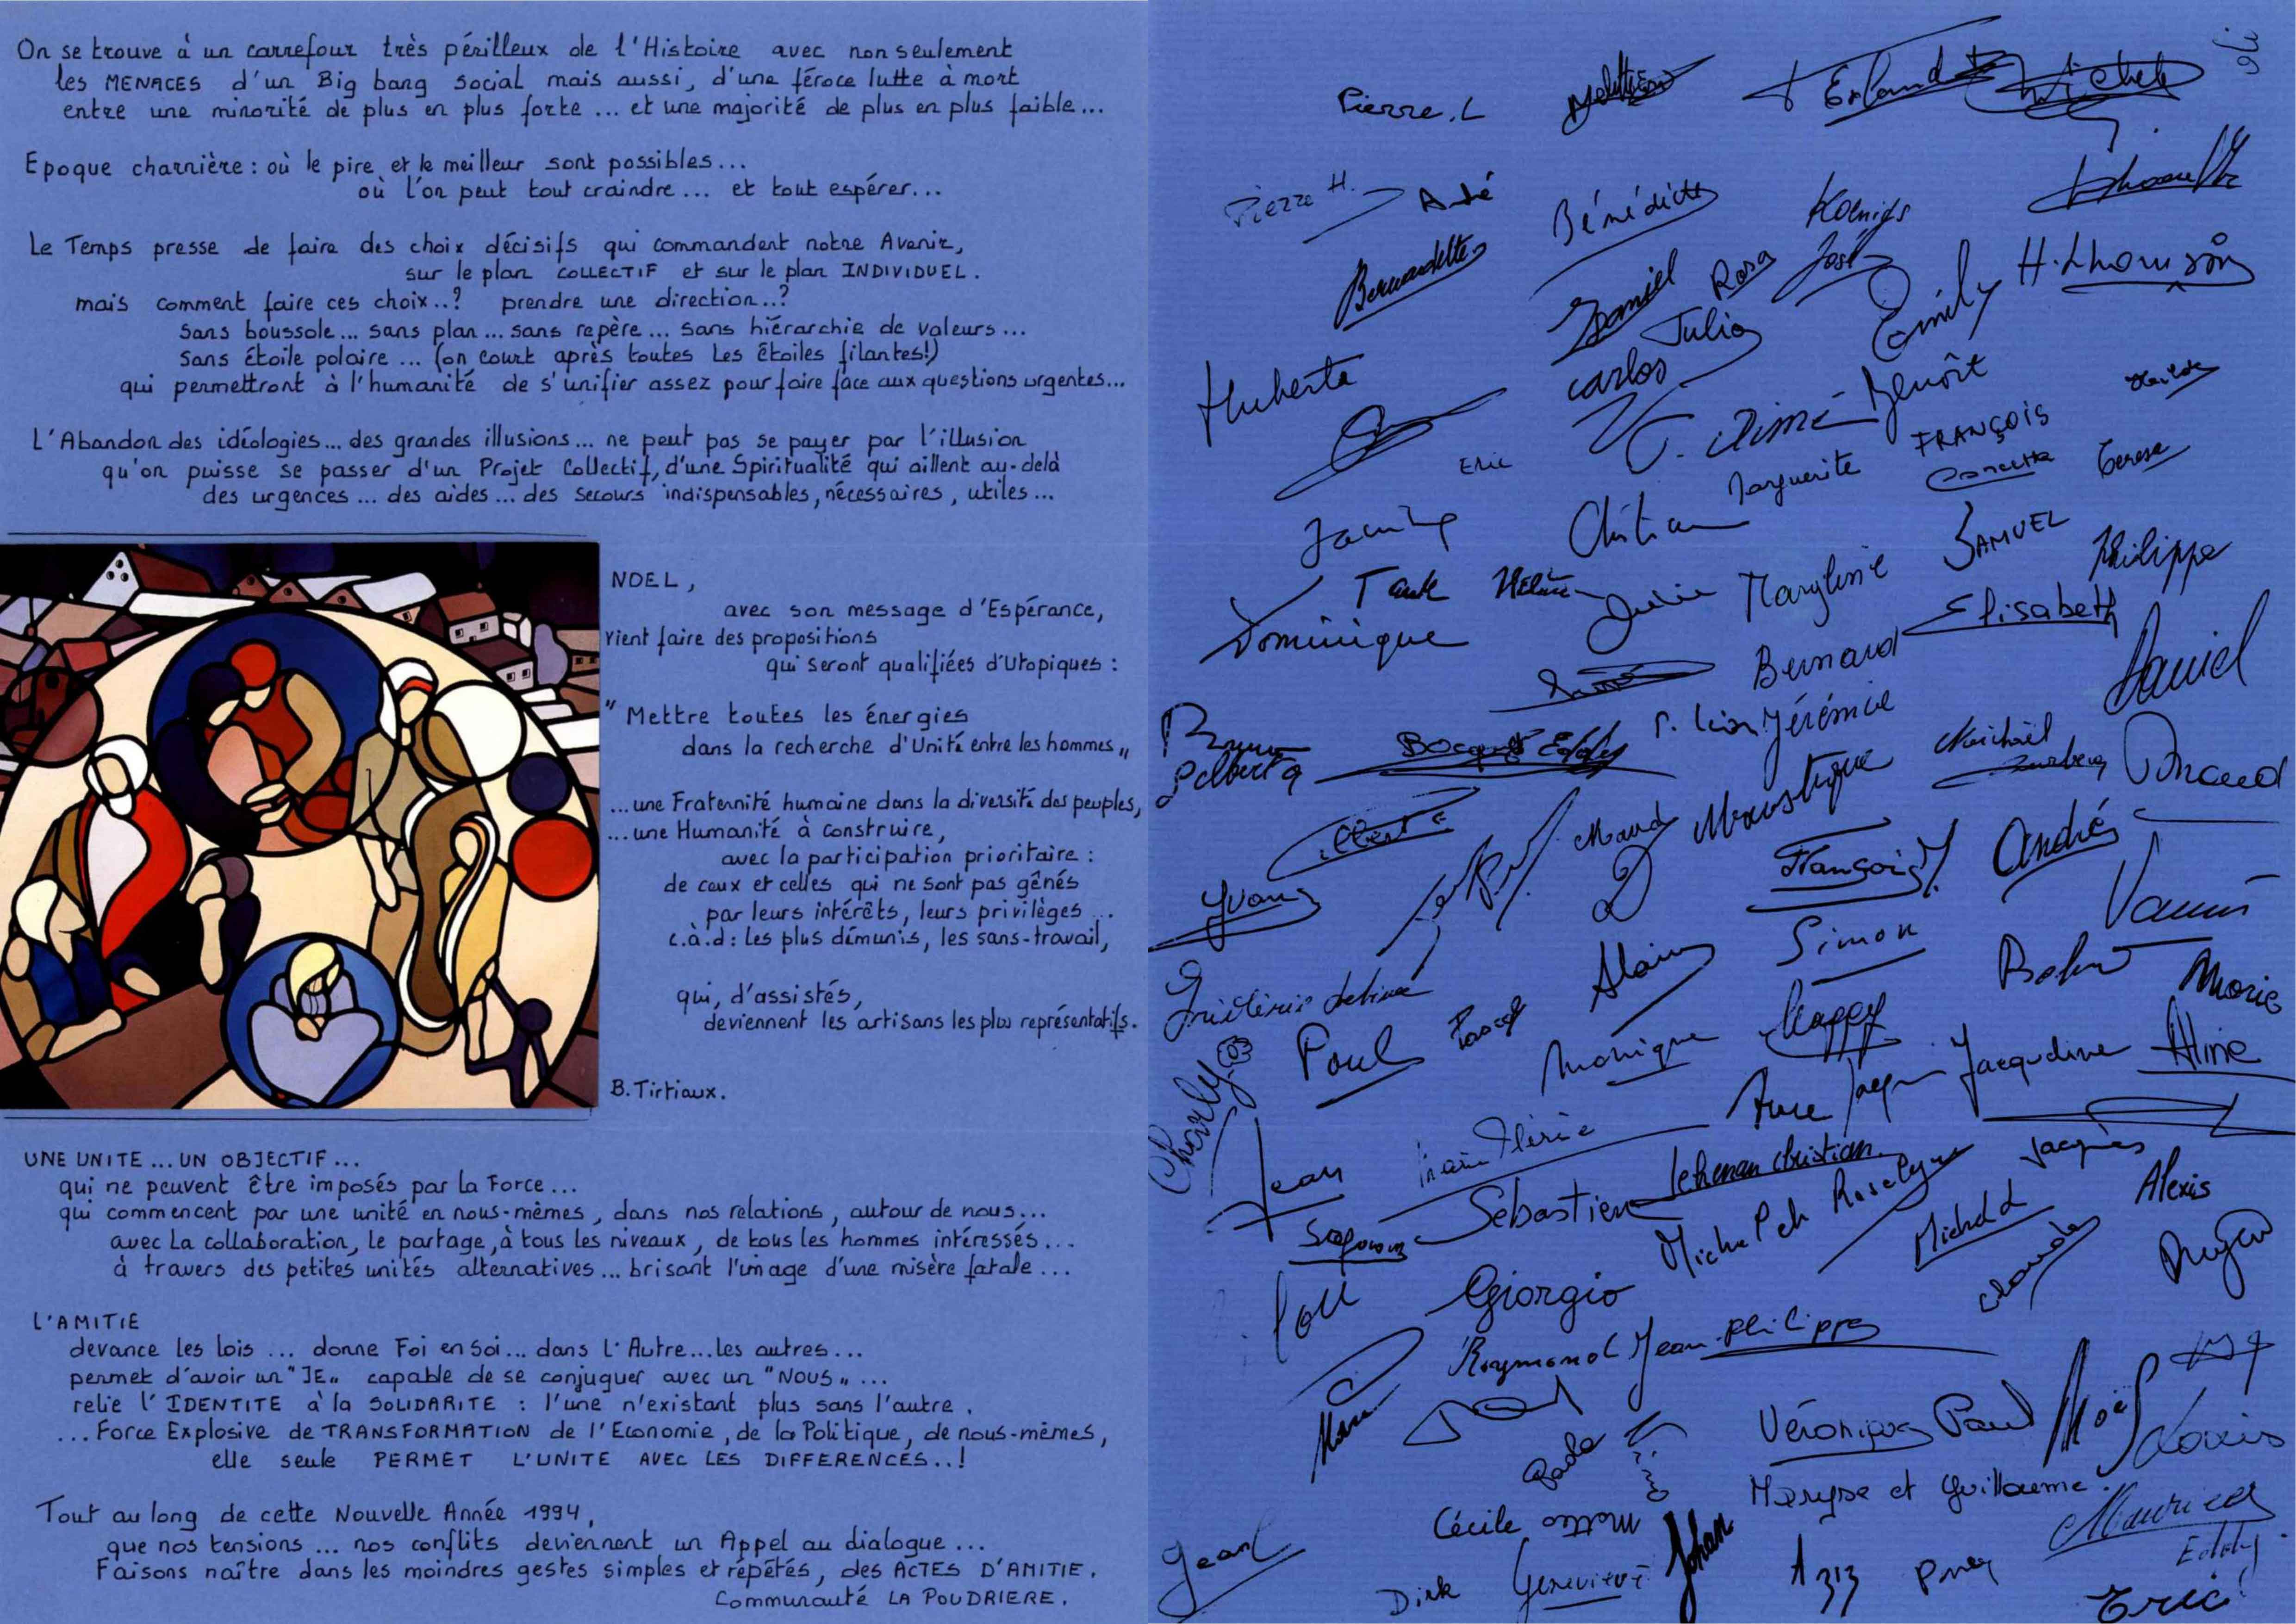 On se trouve à un carrefour très périlleux de l'Histoire avec non seulement
les MENACES d'un Big bang social mais aussi, d'une féroce lutte à mort
entre une minorité de plus en plus forte ... et une majorité de plus en plus faible ...
Epoque charnière : où le pire et le meilleur sont possibles ...
où l'on peut tout craindre ... et tout espérer ...
Le Temps presse de faire des choix décisifs qui commandent notre Avenir,
sur le plan COLLECTIF et sur le plan INDIVIDUEL.
mais comment faire ces choix..? prendre une direction..?
sans boussole ... sans plan ... sans repère ... sans hiérarchie de valeurs ...
sans étoile polaire ... (on court après toutes les étoiles filantes!)
qui permettront à l'humanité de s'unifier assez pour faire face aux questions urgentes...
L'Abandon des idéologies ... des grandes illusions ... ne peut pas se payer par l'illusion
qu'on puisse se passer d'un Projet Collectif, d'une Spiritualité qui aillent au-delà
des urgences ... des aides ... des secours indispensables, nécessaires, utiles ...
NOEL,
avec son message d'Espérance,
vient faire des propositions
qui seront qualifiées d'Utopiques :
" Mettre toutes les énergies
dans la recherche d'Unité entre les hommes "
... une Fraternité humaine dans la diversité des peuples,
... une Humanité à construire,
avec la participation prioritaire :
de ceux et celles qui ne sont pas gênés
par leurs intérêts, leurs privilèges ...
c.à.d : les plus démunis, les sans-travail,
qui, d'assistés,
deviennent les artisans les plus représentatifs.
B. Tirtiaux.
UNE UNITE ... UN OBJECTIF ...
qui ne peuvent être imposés par la Force ...
qui commencent par une unité en nous-mêmes, dans nos relations, autour de nous ...
avec la collaboration, le partage, à tous les niveaux, de tous les hommes intéressés ...
à travers des petites unités alternatives ... brisant l'image d'une misère fatale ...
L'AMITIE
devance les lois ... donne Foi en Soi ... dans L'Autre ... les autres ...
permet d'avoir un "JE" capable de se conjuguer avec un "NOUS" ...
relie l'IDENTITE à la SOLIDARITE : l'une n'existant plus sans l'autre.
... Force Explosive de TRANSFORMATION de l'Economie, de la Politique, de nous-mêmes,
elle seule PERMET L'UNITE AVEC LES DIFFERENCES..!
Tout au long de cette Nouvelle Année 1994,
que nos tensions ... nos conflits deviennent un Appel au dialogue ...
Faisons naître dans les moindres gestes simples et répétés, des ACTES D'AMITIE.
Communauté LA POUDRIERE.
Pierre.L
Michel
Pierre H.
Bénédicte
Koenigs
José
Bernadette
Daniel
Rosa
Julia
Emily
H. Thomson
Huberte
carlos
Benoît
FRANÇOIS
Eric
Marguerite
Concetta
Terese
Christian
SAMUEL
Philippe
Dominique
Hélène
Maryline
Elisabeth
Bernard
David
Bruno
Jérémie
Michaël
Bocquet Eddy
Moustique
Maud
François
André
Yvan
Simon
Alain
Marie
Charly
Paul
Pascal
Monique
Maggy
Jacqueline
Aline
Jean
Lehenan christian
Jacques
Sébastien
Roselyne
Alexis
Michel d
Claude
Giorgio
Raymond
Jean-Philippe
Marc
Véronique
Paul
Noël
Louis
Maryse et Guillaume
Cécile
Matteo
Johan
Maurice
Eddy
Jean
Dirk
Geneviève
Aziz
Eric!